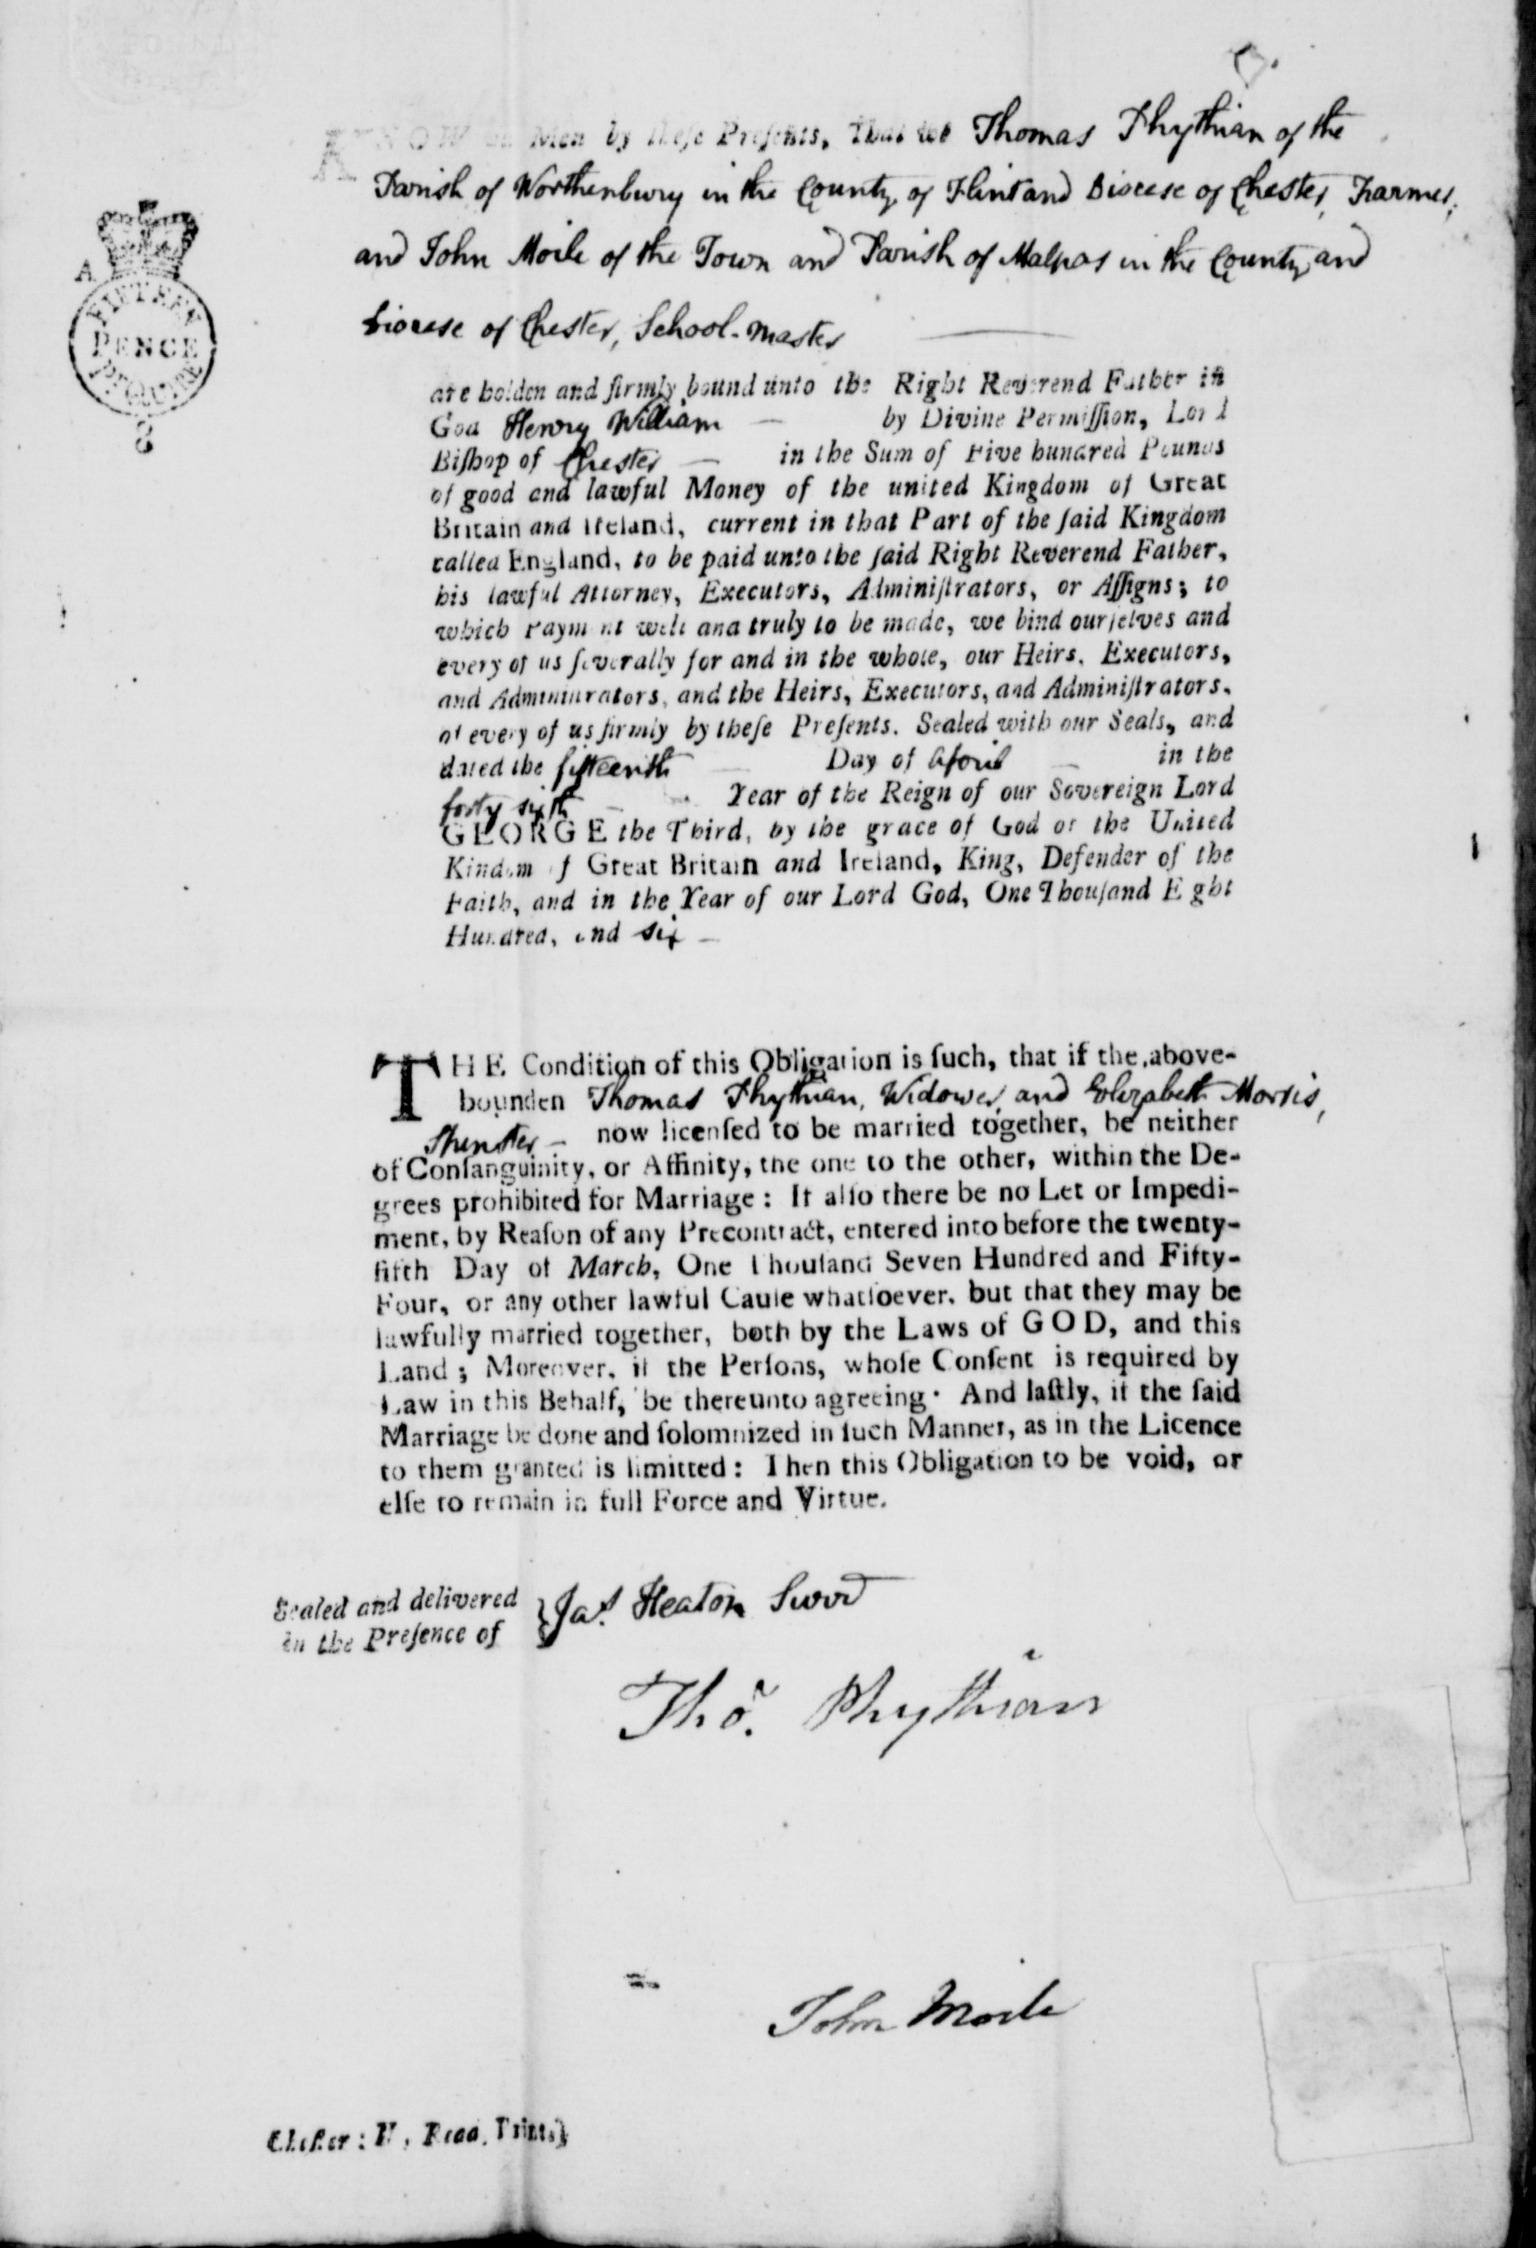 KNOW all Men by theſe Preſents, That we Thomas Phythian of the
Parish of Worthenbury in the County of Flint and Diocese of Chester, Farmer,
and John Moile of the Town and Parish of Malpas in the County and
Diocese of Chester, School-Master
A
FIFTEEN
PENCE
PR QUIRE
8
are holden and firmly bound unto the Right Reverend Father in
God Henry William — by Divine Permiſſion, Lord
Biſhop of Chester — in the Sum of Five hundred Pounds
of good and lawful Money of the united Kingdom of Great
Britain and Ireland, current in that Part of the ſaid Kingdom
called England, to be paid unto the ſaid Right Reverend Father,
his lawful Attorney, Executors, Adminiſtrators, or Aſſigns; to
which Payment well and truly to be made, we bind ourſelves and
every of us ſeverally for and in the whole, our Heirs, Executors,
and Adminiſtrators, and the Heirs, Executors, and Adminiſtrators,
of every of us firmly by theſe Preſents. Sealed with our Seals, and
dated the fifteenth — Day of April — in the
forty sixth — Year of the Reign of our Sovereign Lord
GEORGE the Third, by the grace of God of the United
Kindom of Great Britain and Ireland, King, Defender of the
Faith, and in the Year of our Lord God, One Thouſand Eght
Hundred, and six —
THE Condition of this Obligation is ſuch, that if the above-
bounden Thomas Phythian, Widower, and Elizabeth Morris,
Spinster — now licenſed to be married together, be neither
of Conſanguinity, or Affinity, the one to the other, within the De-
grees prohibited for Marriage: If alſo there be no Let or Impedi-
ment, by Reaſon of any Precontract, entered into before the twenty-
fifth Day of March, One Thouſand Seven Hundred and Fifty-
Four, or any other lawful Cauſe whatſoever, but that they may be
lawfully married together, both by the Laws of GOD, and this
Land; Moreover, if the Perſons, whoſe Conſent is required by
Law in this Behalf, be thereunto agreeing· And laſtly, if the ſaid
Marriage be done and ſolomnized in ſuch Manner, as in the Licence
to them granted is limitted: Then this Obligation to be void, or
elſe to remain in full Force and Virtue.
Sealed and delivered
in the Preſence of } Jas. Heaton Surr
Tho. Phythian
John Moile
Cheſter: Read, Printer